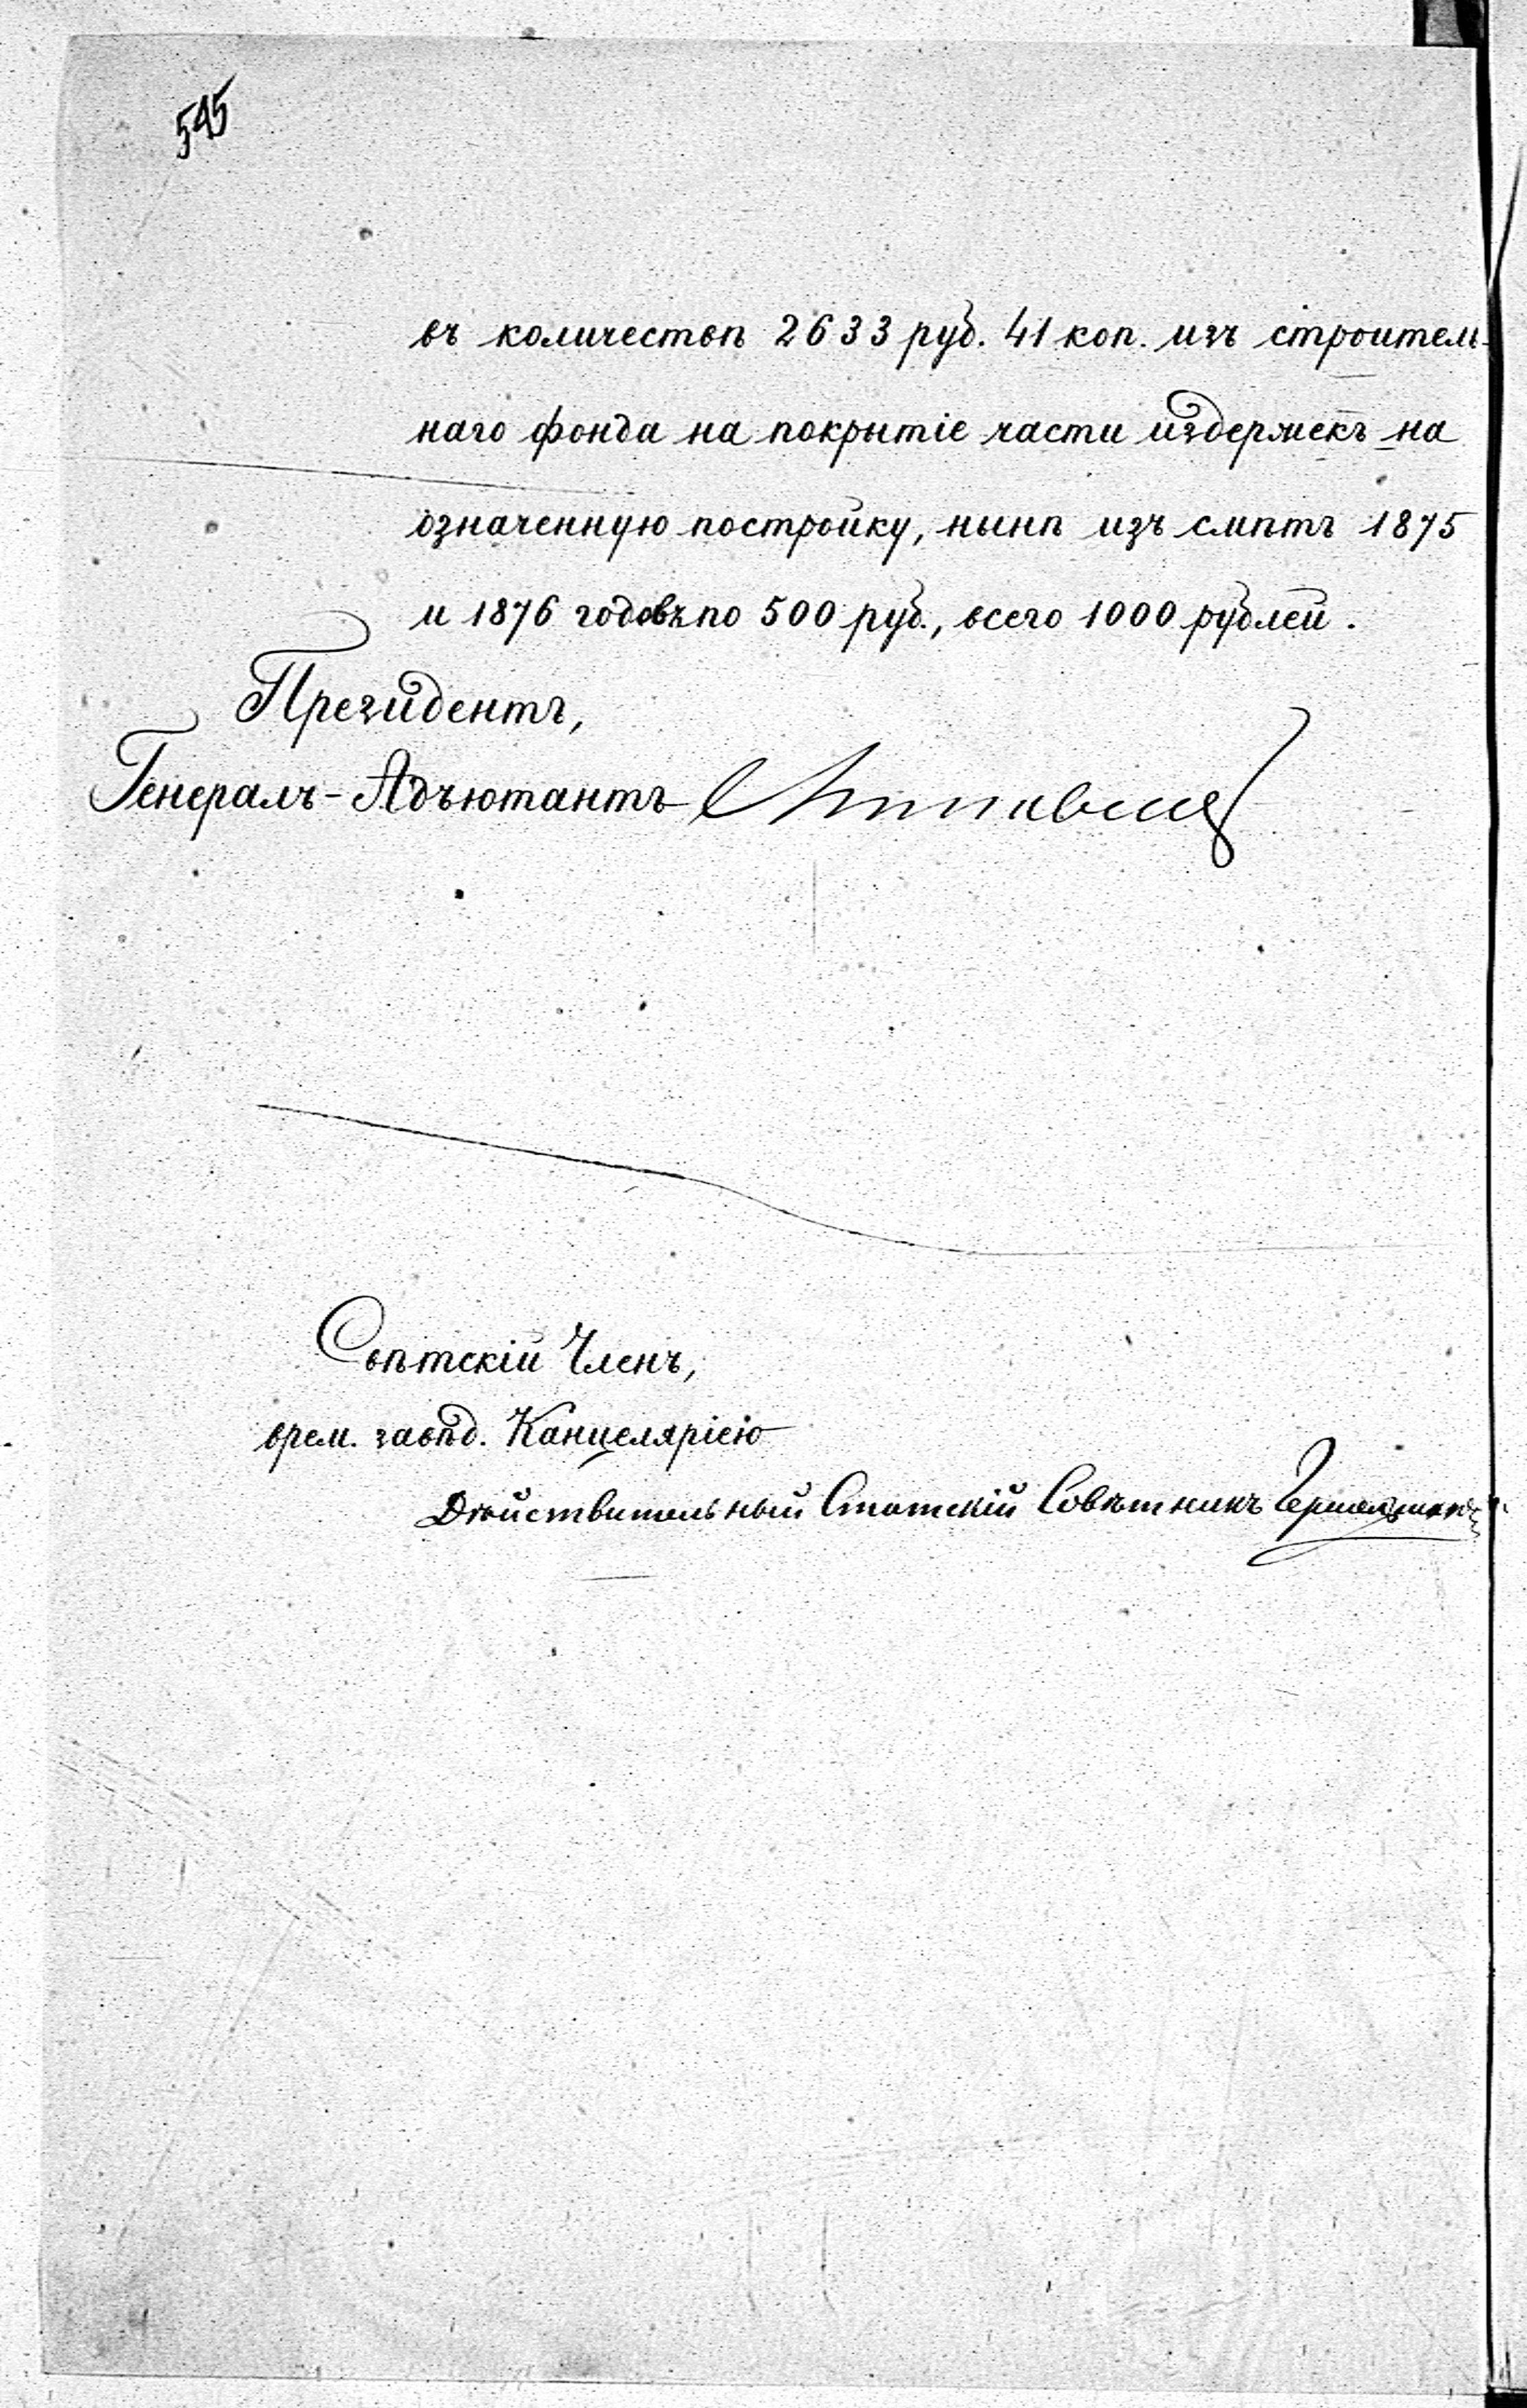 545
въ количествѣ 2633 руб. 41 коп. изъ строитель-
наго фонда на покрытіе части издержекъ на
означенную постройку, нынѣ изъ смѣтъ 1875
и 1876 годовъ по 500 руб., всего 1000 рублей.
Президентъ,
Генералъ-Адъютантъ
Свѣтскій Членъ,
врем. завѣд. Канцеляріею
Дѣйствительный Статскій Совѣтникъ